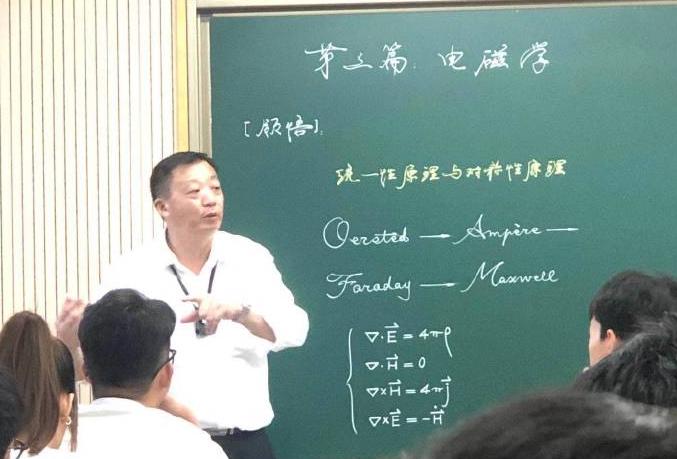 第三篇:电磁学
[顾悟]:
统一性原理与对称性原理
Oersted → Ampère →
Faraday → Maxwell
∇·E⃗ = 4πρ
∇·H⃗ = 0
∇×H⃗ = 4πj⃗
∇×E⃗ = -Ḣ⃗